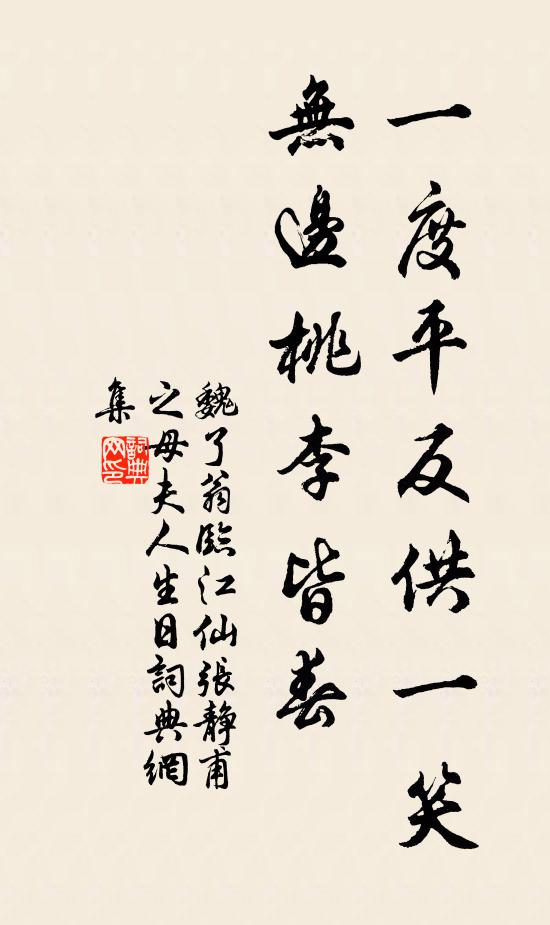 一度平反供一笑
無邊桃李皆春
魏了翁臨江仙張靜甫
之母夫人生日詞典網
集
詞典
网印